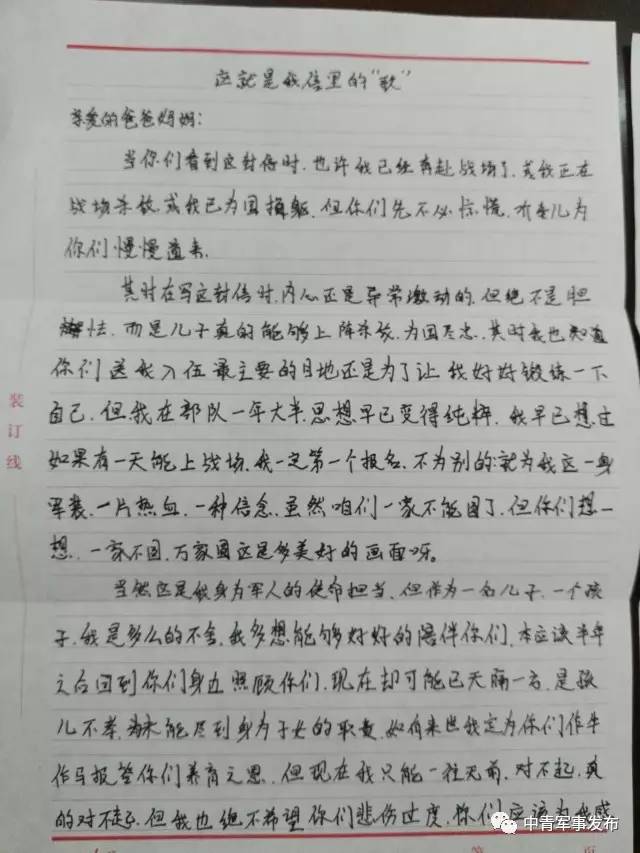 这就是我信里的“歌”
亲爱的爸爸妈妈:
当你们看到这封信时,也许我已经奔赴战场了,或我正在
战场杀敌,或我已为国捐躯,但你们先不必惊慌,听儿为
你们慢慢道来.
其时在写这封信时,内心还是异常激动的,但绝不是胆
怯,而是儿子真的能够上阵杀敌,为国尽忠,其时我也知道
你们送我入伍最主要的目地还是为了让我好好锻练一下
自己,但我在部队一年大半思想早已变得纯粹,我早已想过
如果有一天能上战场,我一定第一个报名,不为别的:就为我这一身
军装,一片热血,一种信念,虽然咱们一家不能圆了,但你们想一
想,一家不圆,万家圆这是多美好的画面呀.
当然这是做身为军人的使命担当,但作为一名儿子,一个孩
子,我是多么的不舍,我多想能够好好的陪伴你们,本应该半年
之后回到你们身边照顾你们,现在却可能已天隔一方,是孩
儿不孝,未能尽到身为子女的职责,如有来世我定为你们作牛
作马报答你们养育之恩,但现在我只能一往无前,对不起,真
的对不起,但我也绝不希望你们悲伤过度,你们应该为我感
装订线
中青军事发布